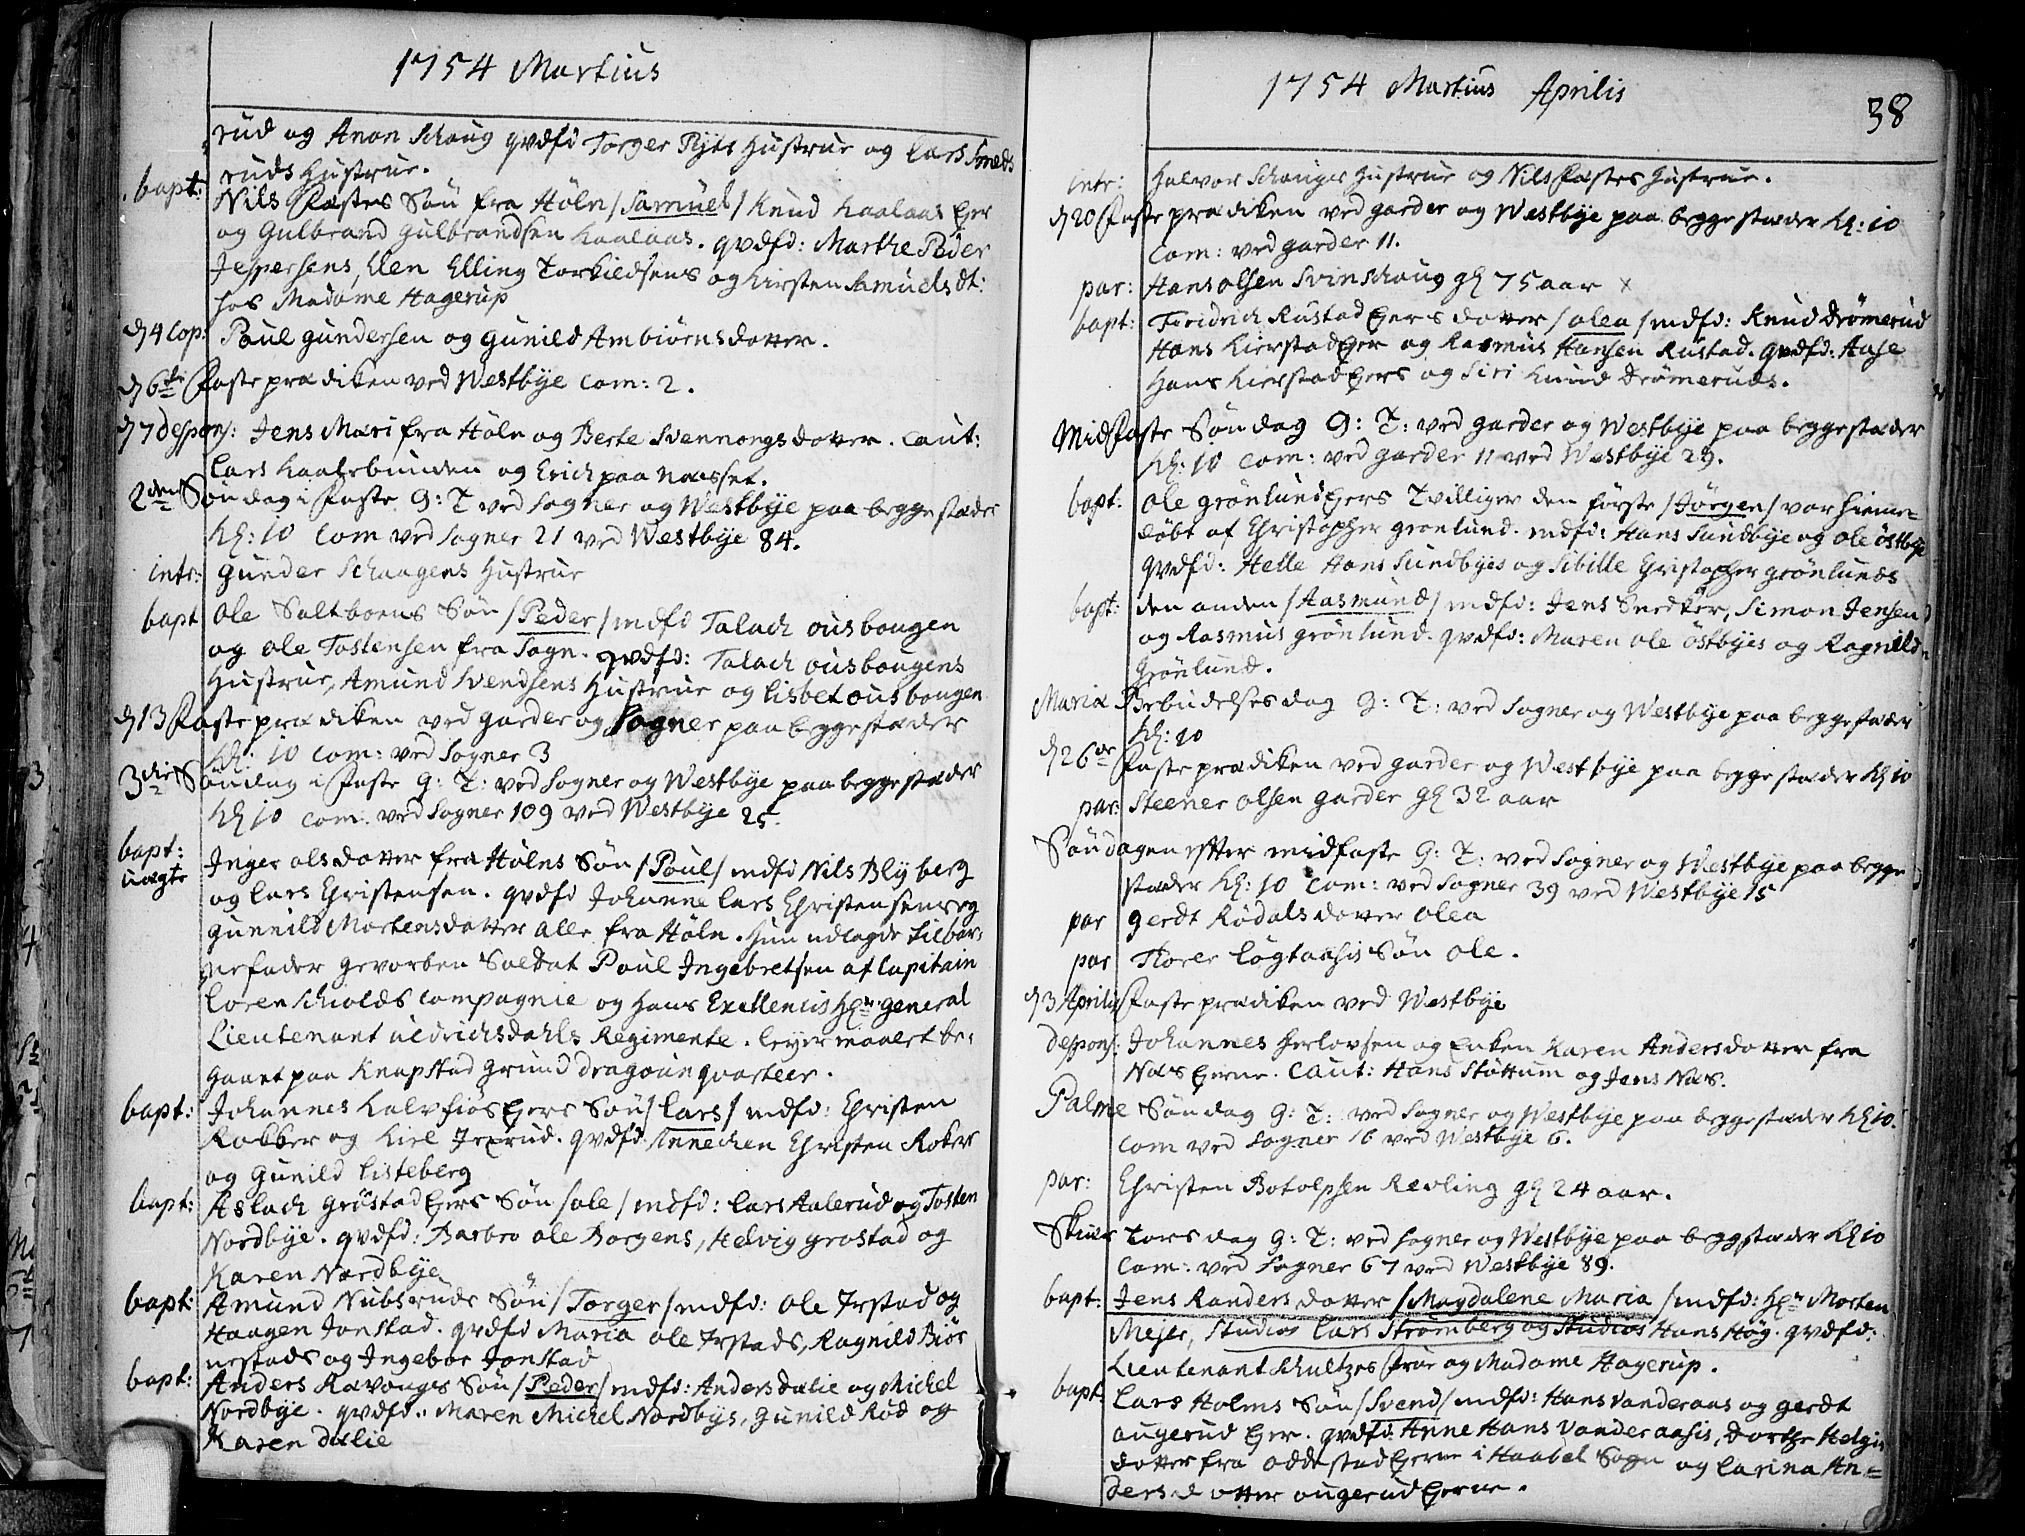 1754 Martius
rud og Anon Schoug qvdfd Torger Ryts Hustrue og Lars Smeds
ruds Hustrue.
bapt: Nils Fastes Søn fra Høln /Samuel/ Knud Kaalaas Ejer
og Gulbrand Gulbrandsen Kaalaas. qvdfd: Marthe Peder
Jespersens, Elen Elling Torkildsens og Kirsten Samuelsdt:
hos Madame Hagerup
d 4 Cop: Poul Gundersen og Gunild Ambiørnsdotter.
d 6te Faste prædiken ved Westbye Com: 2.
d 7 despons: Jens Mæri fra Høln og Berte Svennongsdotter. Caut:
Lars Kaalsbunden og Erich paa Næsset.
2den Søndag i Faste G: T: ved Sogner og Westbye paa begge stæder
Kl: 10 Com ved Sogner 21 ved Westbye 84.
intr: Gunder Schougens Hustrue
bapt Ole Saltboens Søn /Peder/ mdfd Talach Ousbougen
og Ole Tostensen fra Sogn. qvdfd: Talach Ousbougens
Hustrue, Amund Svendsens Hustrue og Lisbet Ousbougen
d 13 Faste prædiken ved Garder og Sogner paa begge stæder
Kl: 10 Com: ved Sogner 3
3die Søndag i Faste G: T: ved Sogner og Westbye paa begge stæder
Kl 10 Com. ved Sogner 109 ved Westbye 25.
bapt: Inger Olsdotter fra Hølns Søn /Poul/ mdfd Nils Blyberg
uægte og Lars Christensen. qvdfd Johanne Lars Christensens og
Gunnild Mortensdotter alle fra Høln. Hun udlagde til bar-
nefader gevorben Soldat Poul Ingebretsen af Capitain
Lorenschiolds Compagnie og Hans Exellencis Hr. General
Lieutenant Uldrichsdahls Regimente. Leyermaalet be-
gaaet paa Knapstad Grund dragoun qvarteer.
bapt: Johannes Kalvfiøs Ejers Søn /Lars/ mdfd: Christen
Rokker og Kiel Jexrud. qvdfd. Annechen Christen Rokers
og Gunild Listeberg
bapt: Aslach Grøstad Ejers Søn /Ole/ mdfd: Lars Aalerud og Tosten
Nordbye. qvdfd: Barbro Ole Borgens, Helvig Grøstad og
Karen Nordbye
bapt: Amund Nubsruds Søn /Torger/ mdfd: Ole Irstad og
Haagen Jonstad. qvdfd Maria Ole Irstads, Ragnild Biør
nestads og Ingebor Jonstad
bapt: Anders Ravongs Søn /Peder/ mdfd: Anders Dælie og Michel
Nordbye. qvdfd: Maren Michel Nordbys, Gunild Rød og
Karen Dælie
1754 Martius Aprilis
38
intr: Halvor Schougs Hustrue og Nils Fastes Hustrue.
d 20 Faste prædiken ved Garder og Westbye paa begge stæder Kl: 10
Com: ved Garder 11.
par: Hans Olsen Svinschoug gl 75 aar x
bapt: Fridrich Rustad Ejers dotter /Olea/ mdfd: Knud Drømerud
Hans Kierstad Ejer og Rasmus Hansen Rustad. qvdfd: Aase
Hans Kierstad Ejers og Siri Knud Drømeruds.
Midfaste Søndag G: T: ved Garder og Westbye paa begge stæder
Kl: 10 Com: ved Garder 11 ved Westbye 29.
bapt: Ole Grønlund Ejers Tvilliger den første /Jørgen/ var hieme-
døbt af Christopher Grønlund. mdfd: Hans Sundbye og Ole Østbye
qvdfd: Helle Hans Sundbyes og Sibille Christopher Grønlunds
bapt: den anden /Aasmund/ mdfd: Jens Snedker, Simon Jensen
og Rasmus Grønlund. qvdfd: Maren Ole Østbyes og Ragnild
Grønlund.
Mariæ Bebudelses dag G: T: ved Sogner og Westbye paa begge stæder
Kl: 10
d 26de Faste prædiken ved Garder og Westbye paa begge stæder Kl 10
par: Steener Olsen Garder gl 32 aar
Søndagen efter midfaste G: T: ved Sogner og Westbye paa begge
stæder Kl: 10 Com: ved Sogner 39 ved Westbye 15
par Gerdt Rødals dotter Olea
par Torer Løgtaasis Søn Ole.
d 3 Aprilis Faste prædiken ved Westbye
despons: Johannes Herlovsen og Enken Karen Andersdotter fra
Næs Ejerne. Caut: Hans Støttum og Jens Næs.
Palme Søndag G: T: ved Sogner og Westbye paa begge stæder Kl 10.
Com ved Sogner 16 ved Westbye 6.
par: Christen Botolphsen Revling gl 24 aar.
Skiær Torsdag G: T: ved Sogner og Westbye paa begge stæder Kl 10
Com: ved Sogner 67 ved Westbye 89.
bapt: Jens Randers dotter /Magdalene Maria/ mdfd: Hr. Morten
Mejer, Studios Lars Strømberg og Studios Hans Høg. qvdfd:
Lieutenant Schultzes Frue og Madame Hagerup.
bapt. Lars Holms Søn /Svend/ mdfd: Hans Vanderaas og Gerdt
Ougerud Ejer. qvdfd: Anne Hans Vanderaasis, Dorthe Helgis
dotter fra Oddestad Ejerne i Haabel Sogn og Carina An=
dersdotter Ougerud Ejerne.